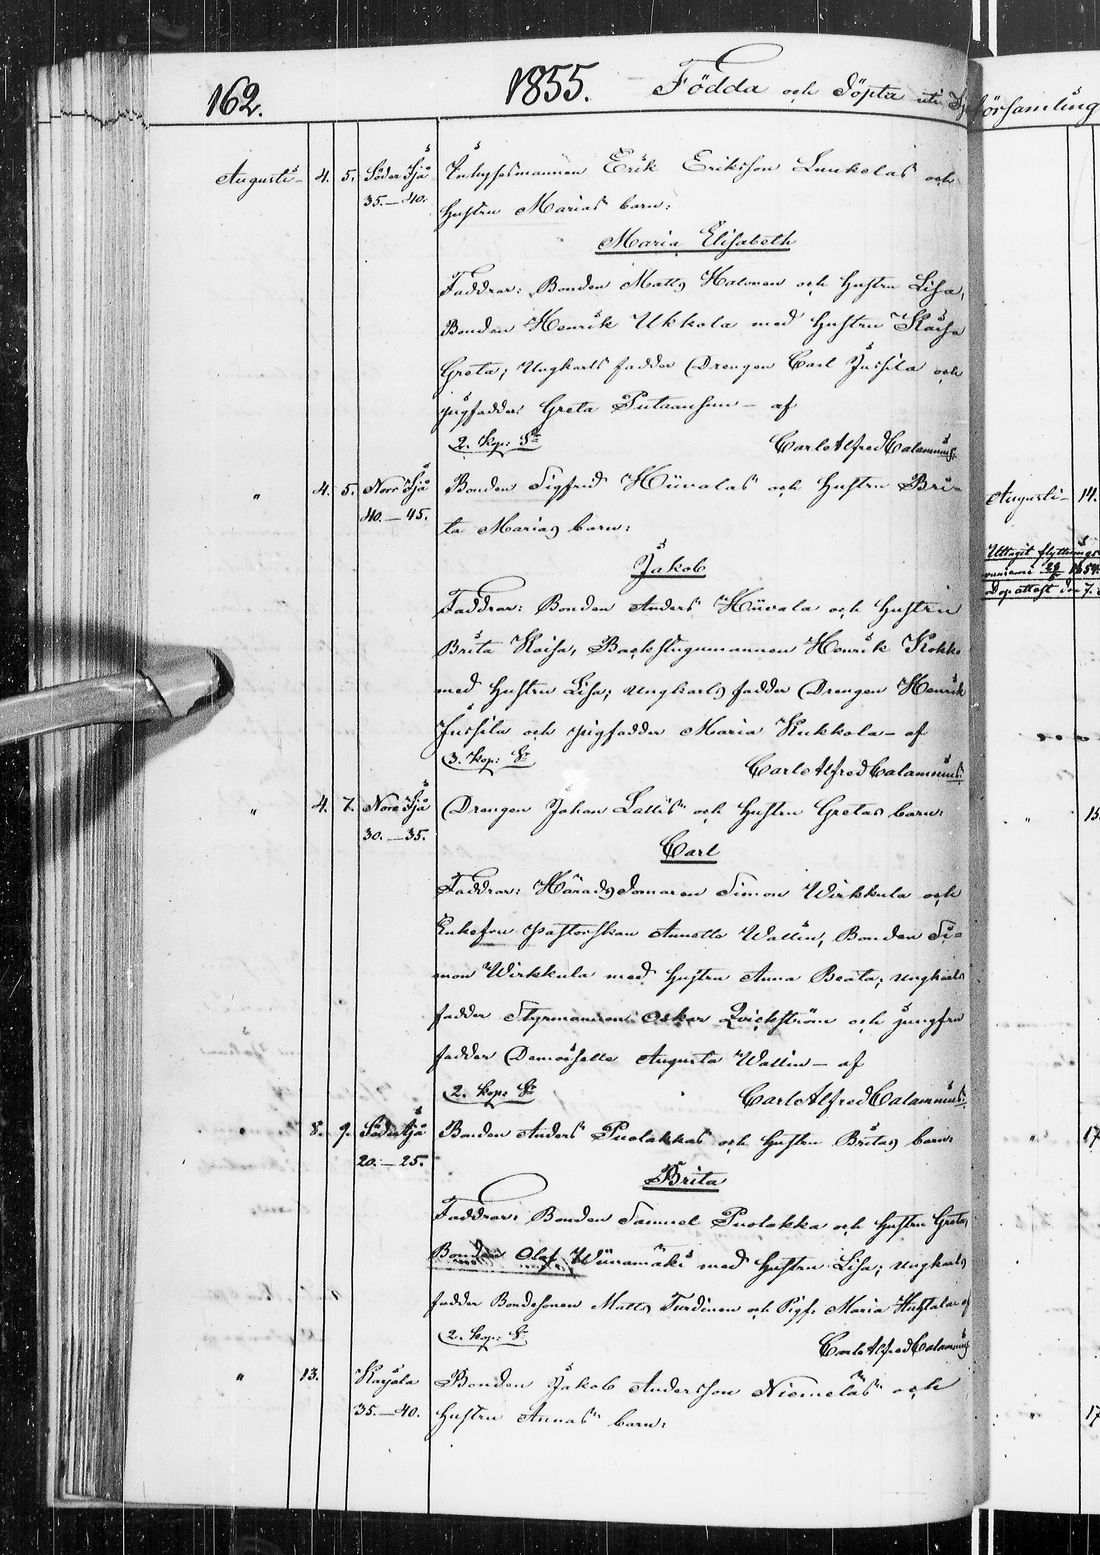 162. 1855. Födda och Döpta uti
församling
Augusti 4. 5. Söder Ijå Inhysesmannen Erik Eriksson Luukelas och
35.—40. hustru Marias barn:
Maria Elisabeth
Faddrar: Bonden Matts Halonen och hustru Lisa,
Bonden Henrik Ukkola med hustru Kaisa
Greta; Ungkarls fadder Drengen Carl Jussila och
pigfadder Greta Putaansuu — af
2. kop: Sr Carl Alfred Calamnius.
" 4. 5. Norr Ijå Bonden Sigfrid Hiivalas och hustru Bri-
40.—45. ta Marias barn:
Jakob
Faddrar: Bonden Anders Hiivala och hustru
Brita Kaisa, Backstugumannen Henrik Kokko
med hustru Lisa; ungkarls fadder Drengen Henrik
Jussila och pigfadder Maria Kukkola — af
3. kop: Sr Carl Alfred Calamnius.
" 4. 7. Norr Ijå Drengen Johan Lallis" och hustru Gretas barn:
30.—35.
Carl
Faddrar: Häradsdomaren Simon Wirkkula och
Enkefru Pastorskan Annette Wallin, Bonden Si-
mon Wirkkula med hustru Anna Beata; ungkarls
fadder Styrmannen Oskar Qvickström och jungfru
fadder Demoiselle Augusta Wallin — af
2. kop: Sr Carl Alfred Calamnius.
" 8. 9. Söder Ijå Bonden Anders Puolakkas och hustru Britas barn:
20.—25.
Brita
Faddrar: Bonden Samuel Puolakka och hustru Greta,
Bonden Olof Wiinamäki med hustru Lisa; ungkarls
fadder Bondesonen Matts Turdinen och Pigf. Maria Huhtala af
2. kop: Sr Carl Alfred Calamnius
" 13. Karjala Bonden Jakob Andersson Niemeläs" och
35.—40. hustru Annas" barn:
Augusti — 14.
Uttagit flyttnings
" 15.
" 17
" 17